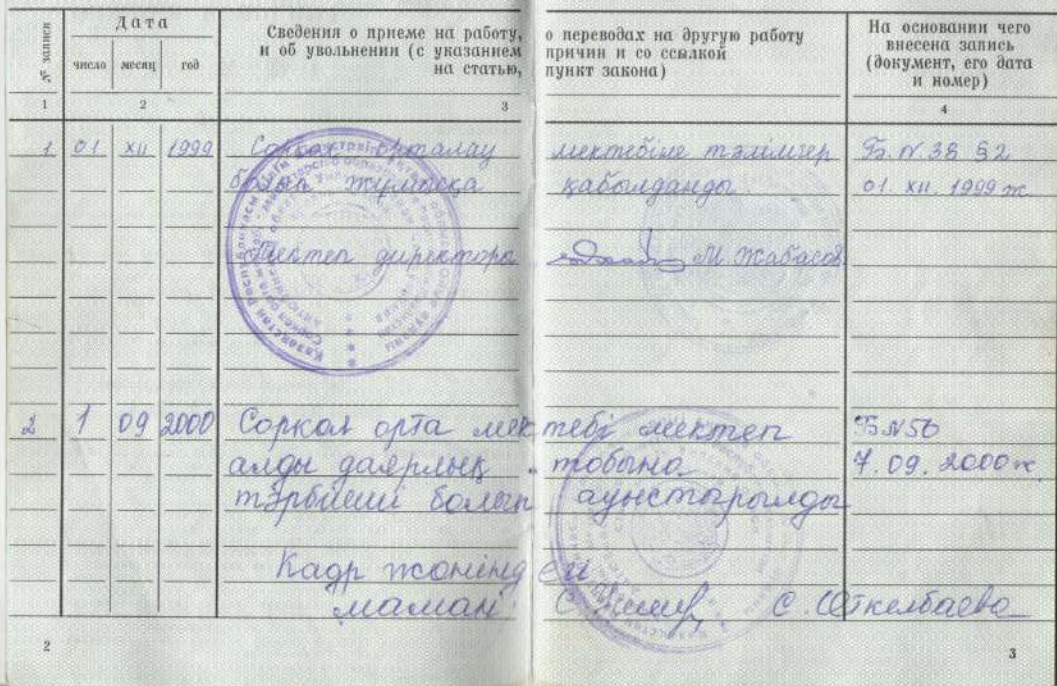 № записи
Дата
Сведения о приеме на работу, о переводах на другую работу
и об увольнении (с указанием причин и со ссылкой
на статью, пункт закона)
На основании чего
внесена запись
(документ, его дата
и номер)
число месяц год
1 2 3 4
1 01 XII 1999 мектебіне тәлімгер Б. N 38 §2
болып жұмысқа қабылданды 01. XII. 1999 ж
Мектеп директоры М. Жабасов
2 1 09 2000 Соркол орта мектебі мектеп Б N 56
алды даярлық тобына 7. 09. 2000 ж
тәрбиеші болып ауыстырылды
Кадр жөніндегі
маман С. Өткелбаева
2 3